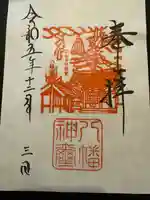 奉拝
八幡神璽
令和五年十二月
三日